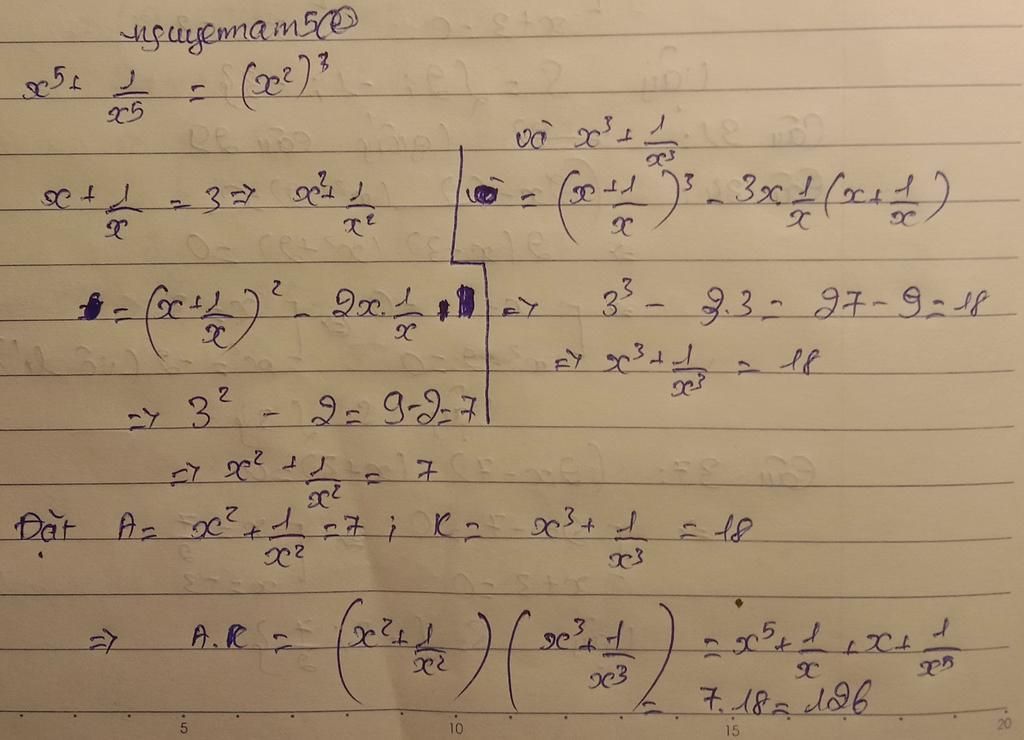 nguyetnam50
x⁵ + 1/x⁵ = (x²)³
x + 1/x = 3 => x² + 1/x²
= (x + 1/x)² - 2x.1/x
=> 3² - 2 = 9-2=7
=> x² + 1/x² = 7
và x³ + 1/x³
= (x + 1/x)³ - 3x.1/x(x + 1/x)
=> 3³ - 3.3 = 27 - 9 = 18
=> x³ + 1/x³ = 18
Đặt A = x² + 1/x² = 7 ; K = x³ + 1/x³ = 18
=> A.K = (x² + 1/x²)(x³ + 1/x³) = x⁵ + 1/x + x + 1/x⁵
= 7.18 = 126
5 10 15 20